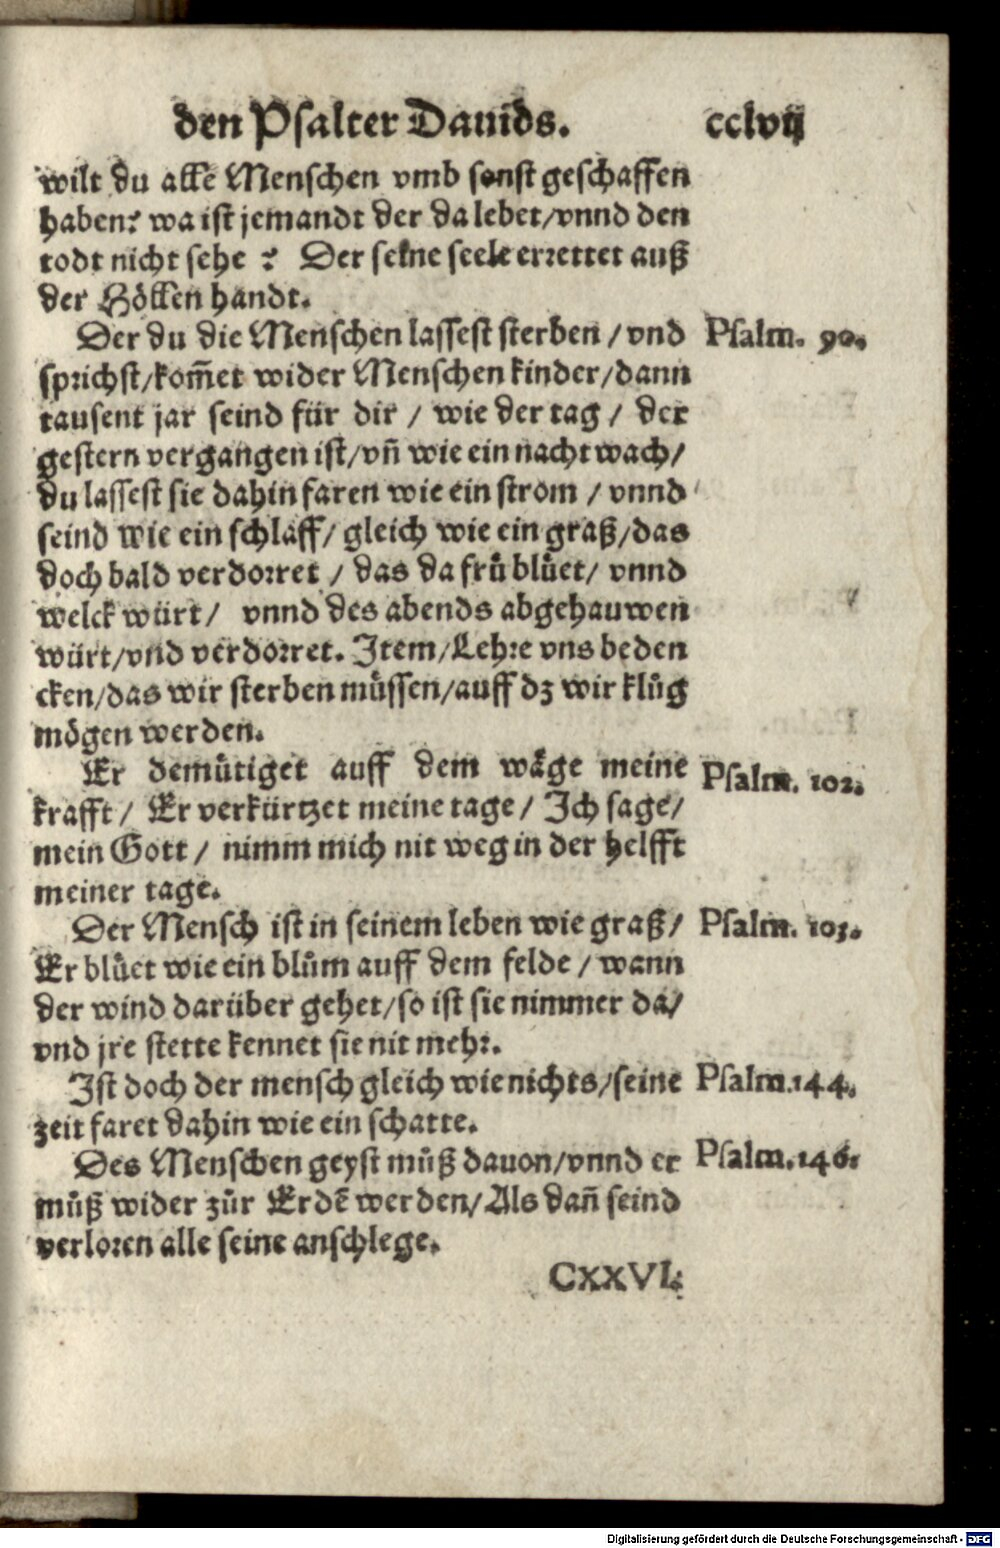 den Psalter Dauids. cclvij
wilt du alle Menschen vmb sonst geschaffen
haben? wa ist jemandt der da lebet/vnnd den
todt nicht sehe ? Der seine seele errettet auß
der Höllen handt.
Der du die Menschen lassest sterben / vnd Psalm. 90.
sprichst/kom̃et wider Menschen kinder/dann
tausent jar seind für dir / wie der tag / der
gestern vergangen ist/vñ wie ein nacht wach/
du lassest sie dahin faren wie ein strom / vnnd
seind wie ein schlaff/ gleich wie ein graß/das
doch bald verdorret / das da frů blůet/ vnnd
welck würt/ vnnd des abends abgehauwen
würt/vnd verdorret. Item/Lehre vns beden
cken/das wir sterben müssen/auff dz wir klůg
mögen werden.
Er demütiget auff dem wäge meine Psalm. 102.
krafft/ Er verkürtzet meine tage/ Ich sage/
mein Gott/ nimm mich nit weg in der helfft
meiner tage.
Der Mensch ist in seinem leben wie graß/ Psalm. 103.
Er blůet wie ein blům auff dem felde / wann
der wind darüber gehet/so ist sie nimmer da/
vnd jre stette kennet sie nit mehr.
Ist doch der mensch gleich wie nichts/seine Psalm.144.
zeit faret dahin wie ein schatte.
Des Menschen geyst můß dauon/vnnd er Psalm.146.
můß wider zůr Erdẽ werden/Als dañ seind
verloren alle seine anschlege.
CXXVI.
Digitalisierung gefördert durch die Deutsche Forschungsgemeinschaft - DFG